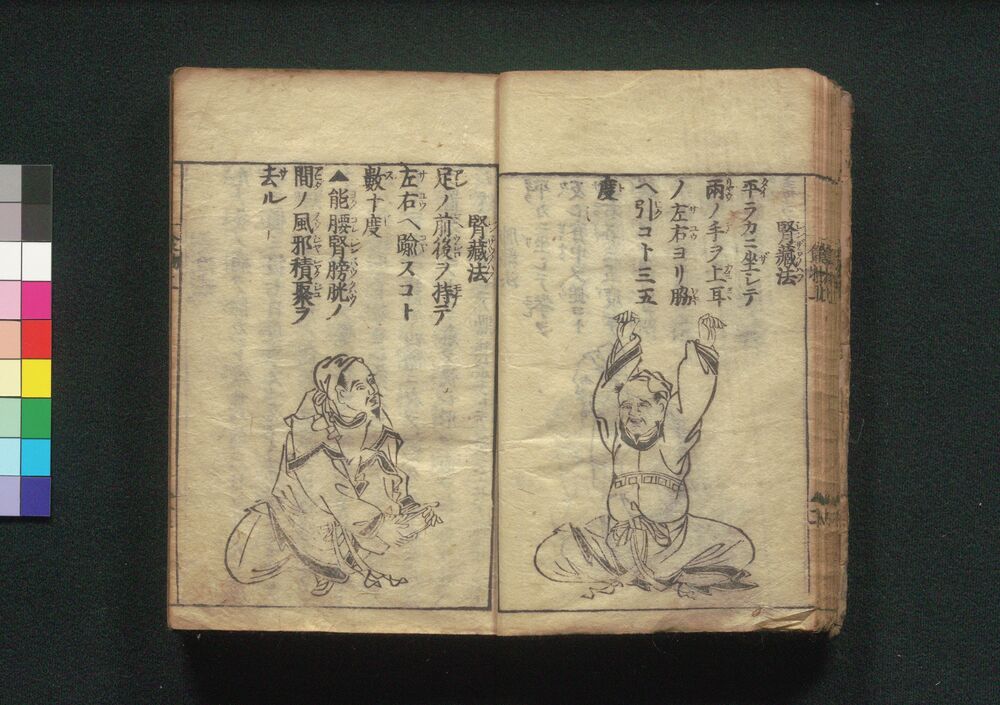 腎藏法
平ラカニ坐シテ
兩ノ手ヲ上耳
ノ左右ヨリ脇
ヘ引コト三五
度
腎藏法
足ノ前後ヲ持テ
左右ヘ踰スコト
數十度
▲能腰腎膀胱ノ
間ノ風邪積聚ヲ
去ル